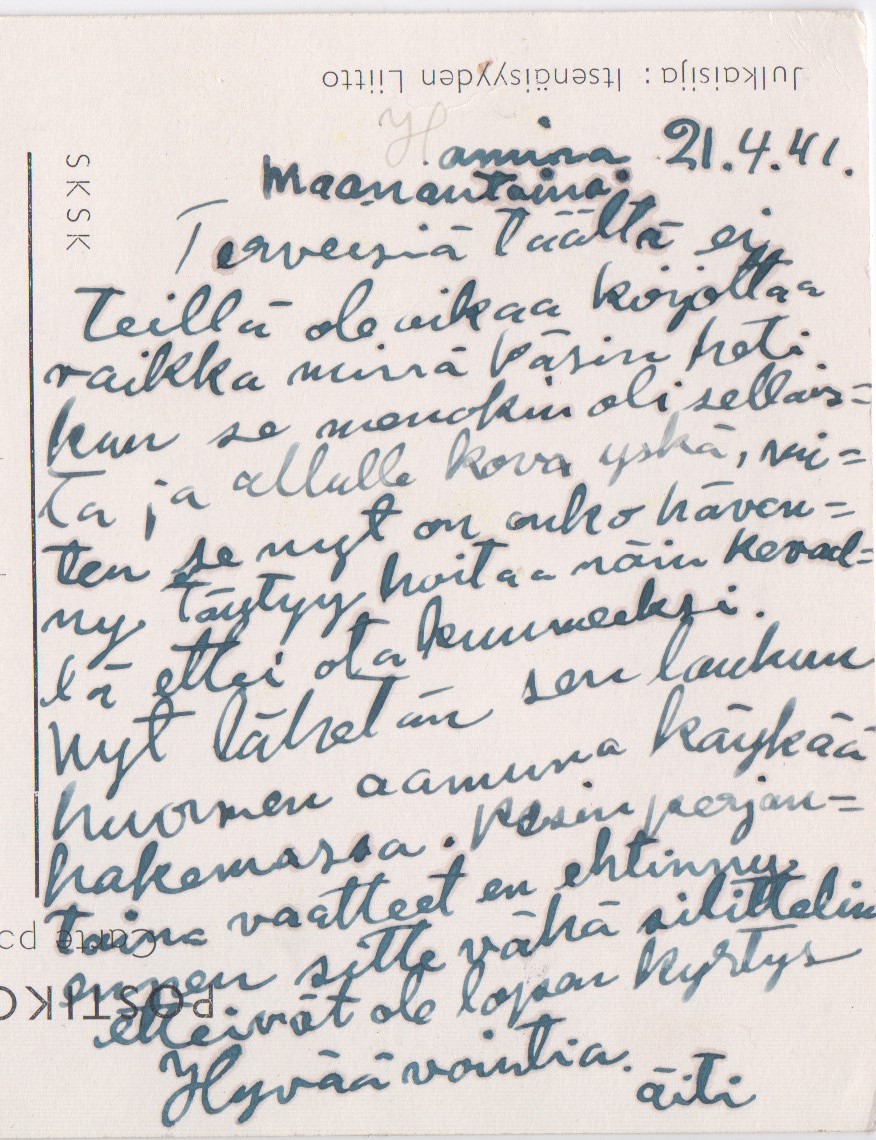 Julkaisija: Itsenäisyyden Liitto
Hamina 21.4.41.
Maanantaina.
Terveisiä täältä ei
teillä ole aikaa kirjottaa
vaikka minä käsin heti
kun se menokin oli sellais=
ta ja allulle kova yskä, mi=
ten se nyt on onko häven=
ny. Täytyy hoitaa näin keväd=
lä ettei ota kuumeeksi.
Nyt lähetän sen laukun
huomen aamuna käykää
hakemassa. Pesin perjan=
taina vaatteet en ehtinny
ennen sitte vähä silittelin
etteivät ole lopen kyrtys
Hyvää vointia.
äiti
SKSK
Carte po
POSTIKO